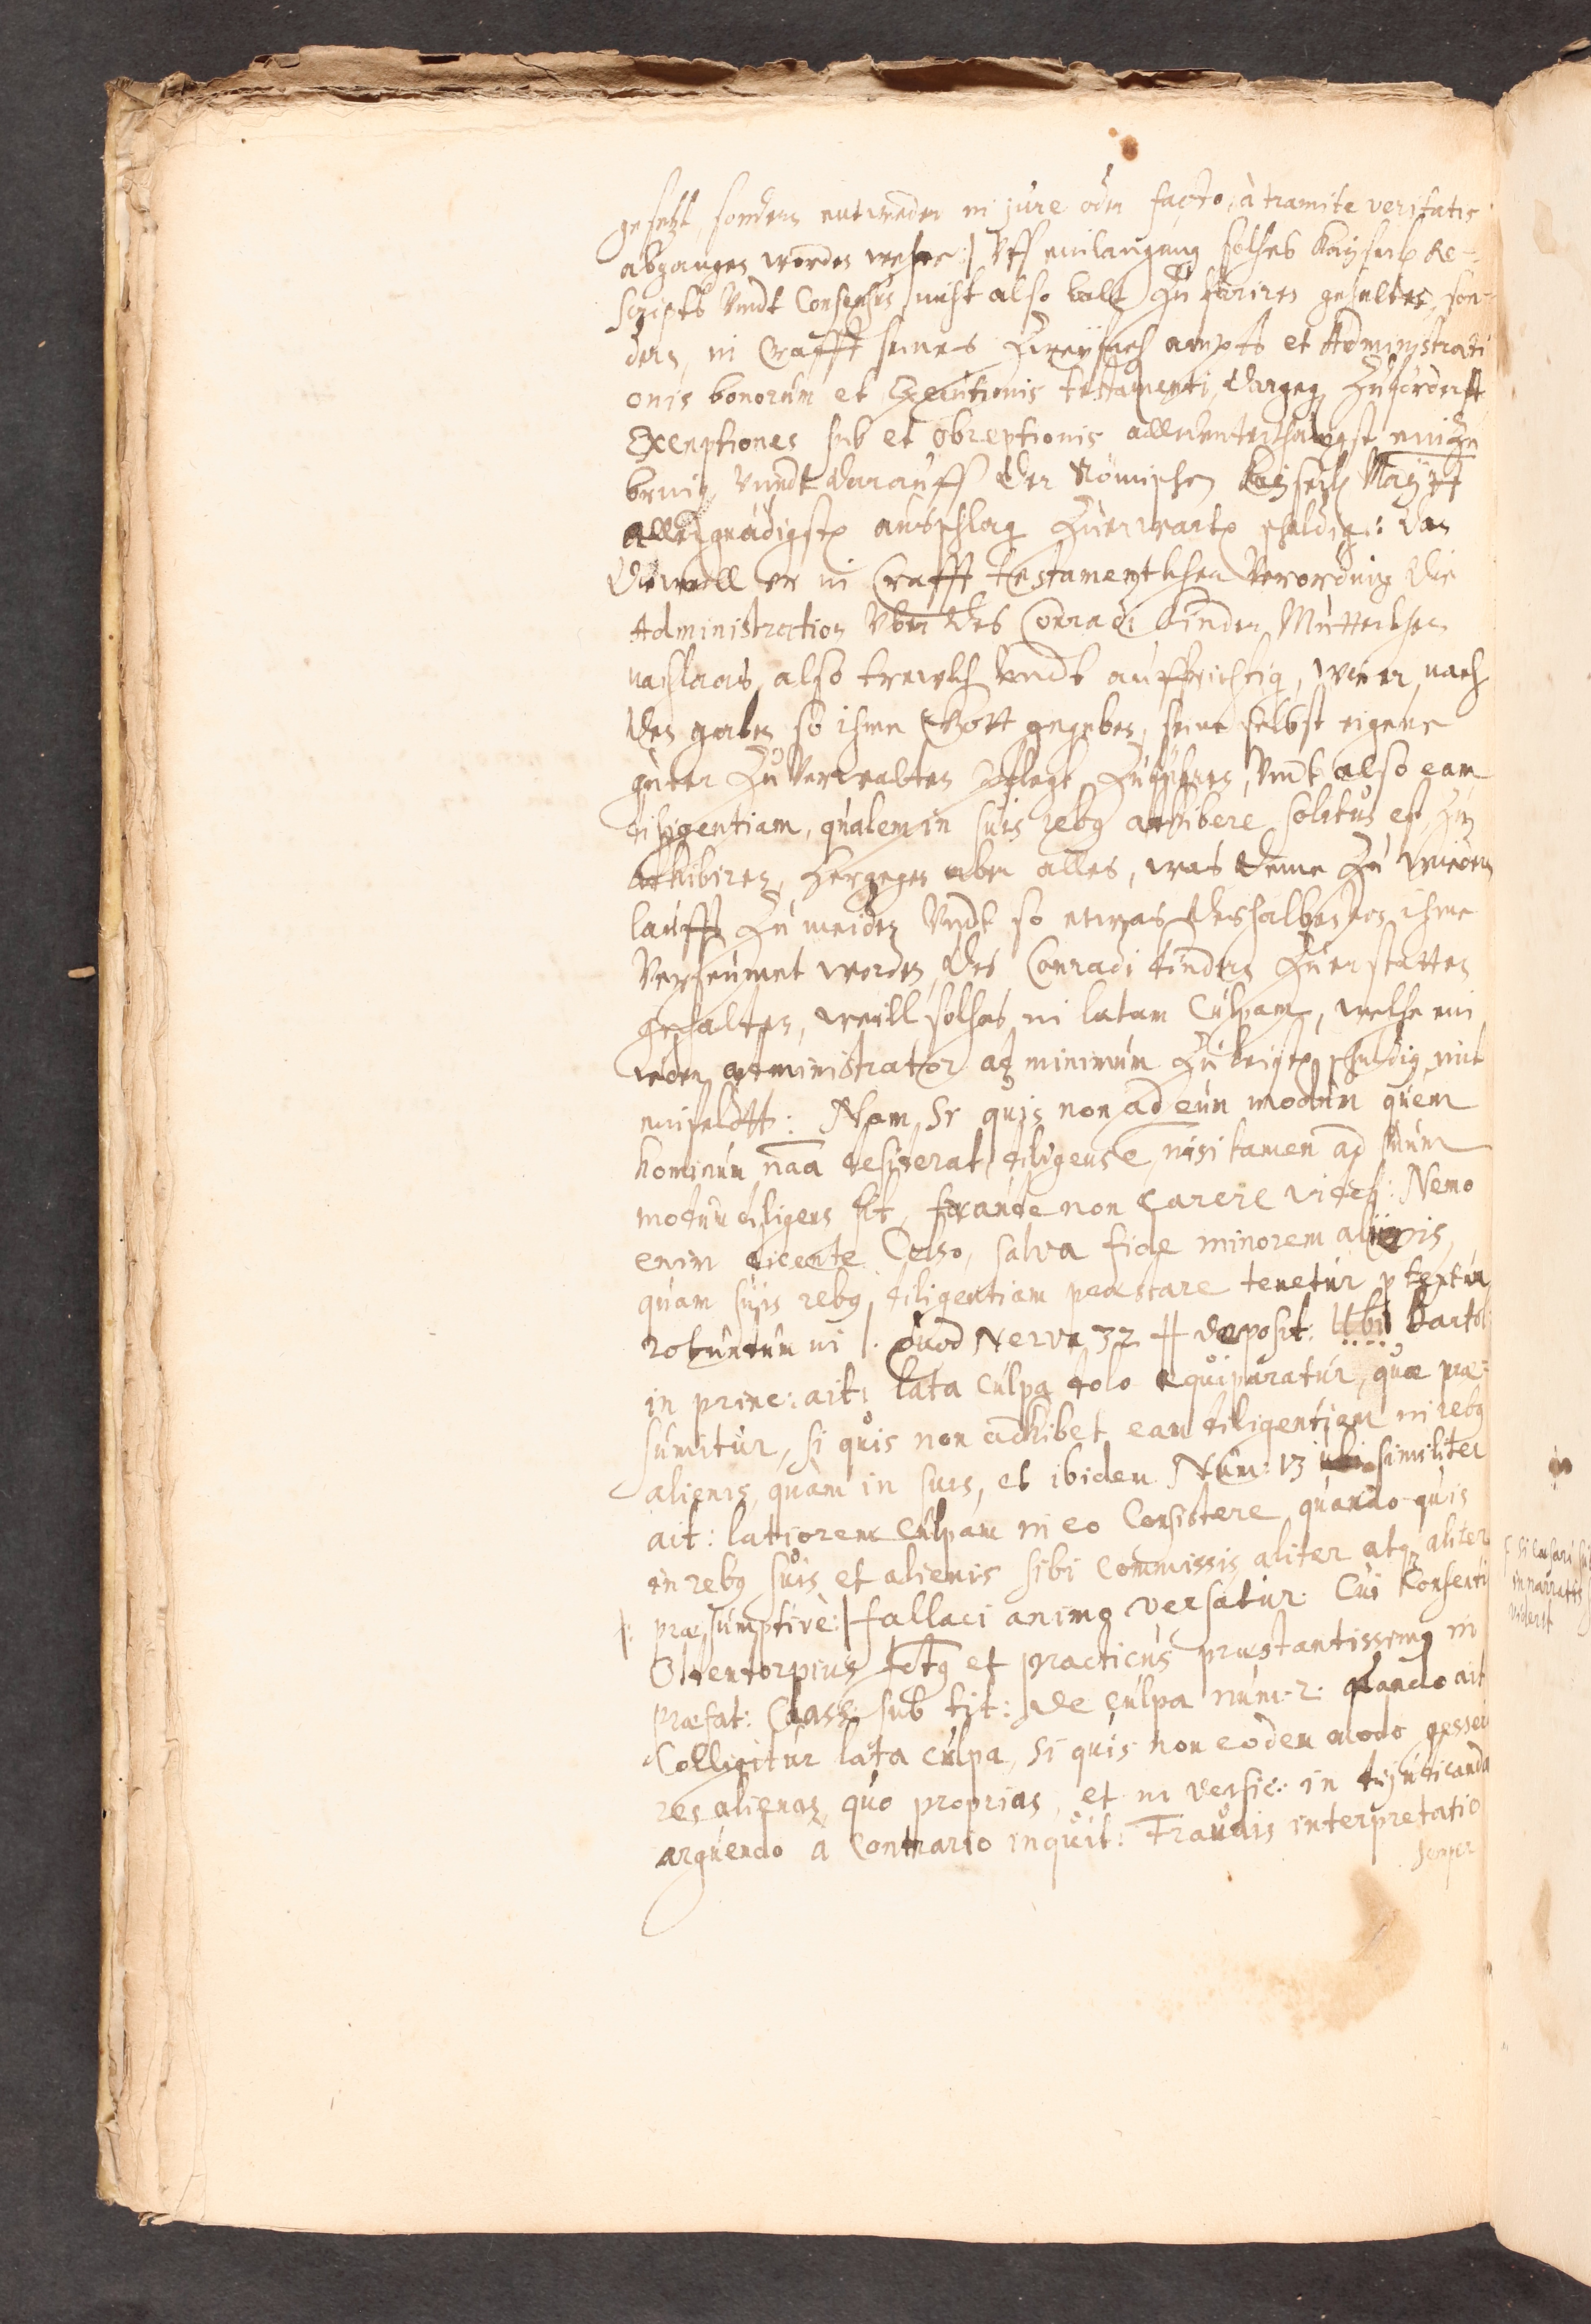 gesetzt, sondern entweder in jure oder facto, à tramite veritatis
abgangen worden wehre:| Vff einlangung solches Kayserl: Re-
scripts Vndt Consensus nicht also baldt Zu pariren gehalten, son-
dern in Crafft seines ampts et Administrati
onis bonorum et Executionis testamenti, dargegen Zuforderst
Exceptiones sub et obreptionis allerunterthänigst einzu
bringen Vnndt darauff der Römischen Kayserl: Mayytt
allergnädigsten ausschlag Zuerwarten schuldig: dan
dieweill er in Crafft testamentlichen Verordnung die
Administration Vber des Conradi Kinder Mutterlichen
nachlaas also trewlich Vndt auffrichtig, wie er nach
den gaben so ihme Gott gegeben, seine selbst eigene
güter Zu Verwalten pflegt, Zuführen, Vndt also eam
diligentiam, qualem in suis rebus adhibere solitus est, Zu
adhibiren, hergegen aber alles, was deme Zu wieder
laufft Zu meiden Vndt so etwas deshalben von ihme
Verseumet worden, des Conradi kindern Zu erstatten
gehalten, weill solches in latam Culpam, welche ein
ieder administrator ad minimum Zu schuldig mit
einfeldt: Nam Si quis non ad eum modum quem
hominum naa desiderat, diligens ẽ, nisi tamen ad suum
modum diligens sit, fraude non carere videtur: Nemo
enim dicente Celso, salva fide minorem alienis,
quam suis rebus, diligentiam praestare tenetur p textum
rotundum in l. Quod Nerva 32 ff deposit: Ubi Bartol:
in princ: ait: lata culpa dolo aequiparatur, quae prae-
sumitur, si quis non adhibet eam diligentiam in rebus
alienis, quam in suis, et ibidem Num: 13 similiter
ait: latiorem Culpam in eo Consistere quando quis
in rebus suis et alienis sibi Commissis aliter atque aliter
|: praesumptivè:| fallaci animo versatur: Cui Consenti
Oldendorpius et practicus praestantissimus in
praefat: Class: sub tit: de Culpa num: 2: quando ait
Colligitur lata culpa, si quis non eodem modo gesseri
res alienas, quo proprias, et in versic: in dijudicanda
arguendo à Contrario inquit: Fraudis interpretatio
semper